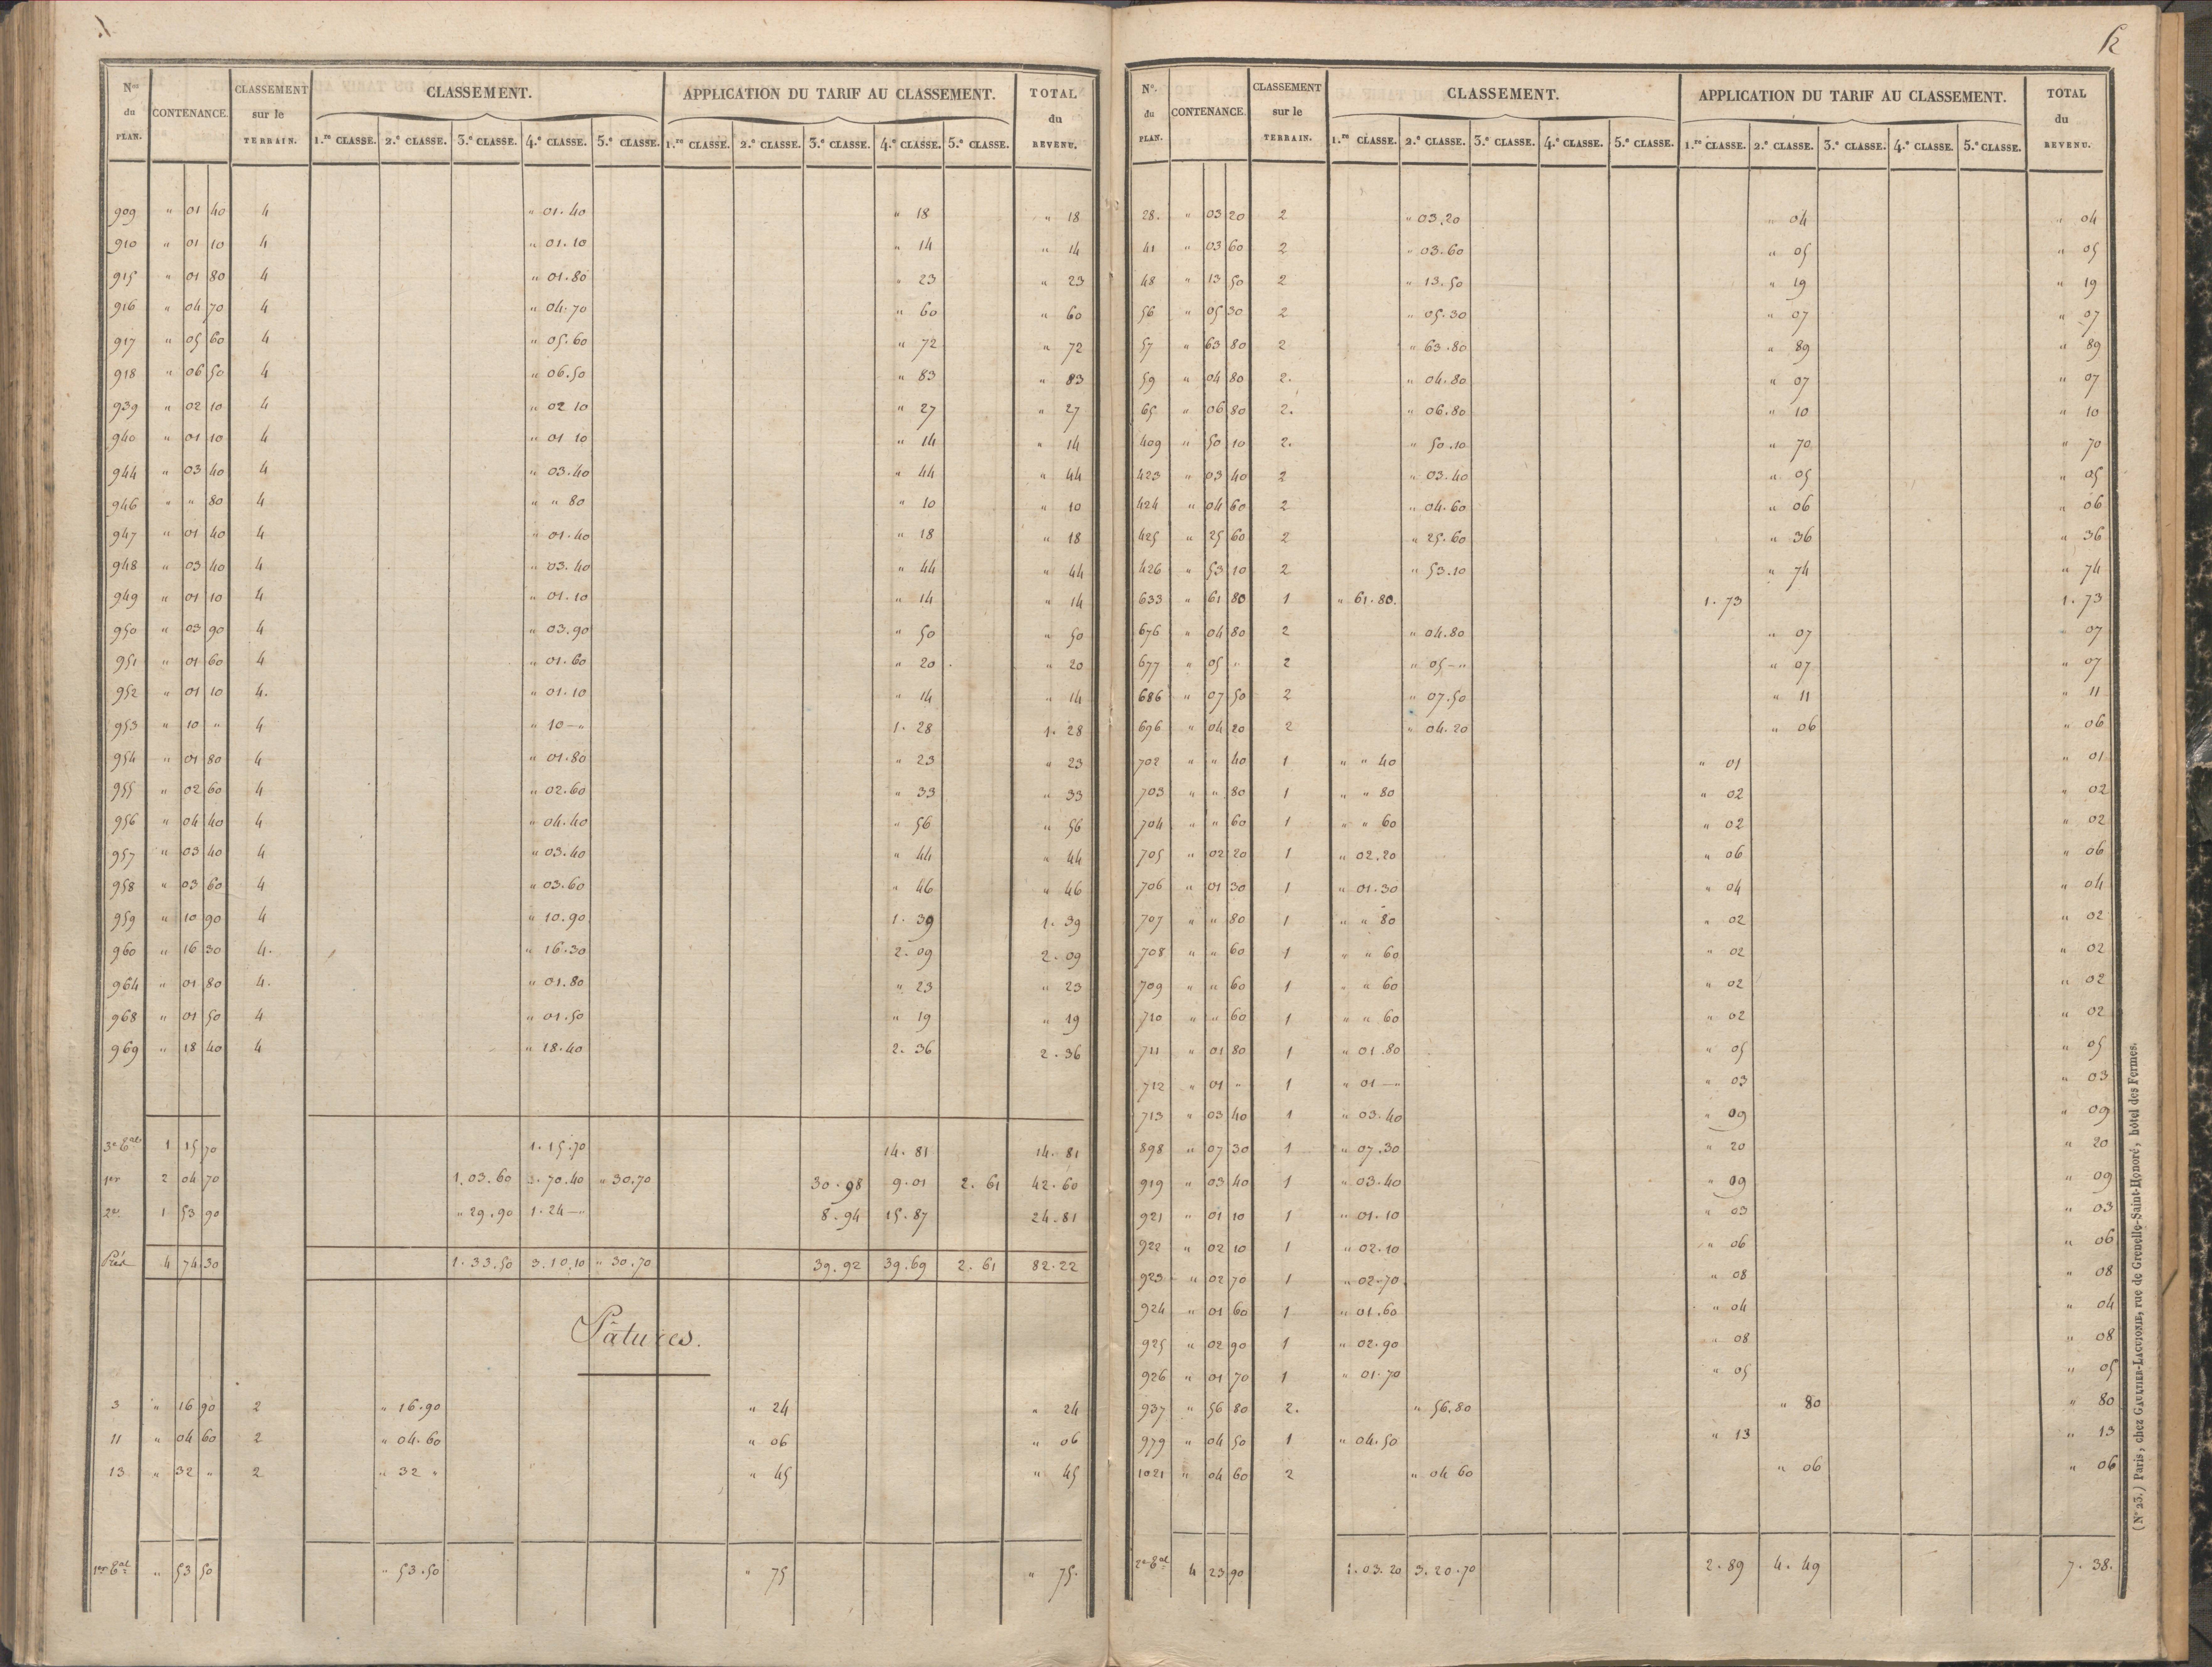 Nos du PLAN. CONTENANCE. CLASSEMENT sur le TERRAIN. CLASSEMENT. APPLICATION DU TARIF AU CLASSEMENT. TOTAL du REVENU.
1.re CLASSE. 2.e CLASSE. 3.e CLASSE. 4.e CLASSE. 5.e CLASSE. 1.re CLASSE. 2.e CLASSE. 3.e CLASSE. 4.e CLASSE. 5.e CLASSE.
909 " 01 40 4 " 01.40 " 18 " 18
910 " 01 10 4 " 01.10 " 14 " 14
915 " 01 80 4 " 01.80 " 23 " 23
916 " 04 70 4 " 04.70 " 60 " 60
917 " 05 60 4 " 05.60 " 72 " 72
918 " 06 50 4 " 06.50 " 83 " 83
939 " 02 10 4 " 02 10 " 27 " 27
940 " 01 10 4 " 01 10 " 14 " 14
944 " 03 40 4 " 03.40 " 44 " 44
946 " " 80 4 " " 80 " 10 " 10
947 " 01 40 4 " 01.40 " 18 " 18
948 " 03 40 4 " 03.40 " 44 " 44
949 " 01 10 4 " 01.10 " 14 " 14
950 " 03 90 4 " 03.90 " 50 " 50
951 " 01 60 4 " 01.60 " 20 " 20
952 " 01 10 4. " 01.10 " 14 " 14
953 " 10 " 4 " 10 — " 1. 28 1. 28
954 " 01 80 4 " 01.80 " 23 " 23
955 " 02 60 4 " 02.60 " 33 " 33
956 " 04 40 4 " 04.40 " 56 " 56
957 " 03 40 4 " 03.40 " 44 " 44
958 " 03 60 4 " 03.60 " 46 " 46
959 " 10 90 4 " 10.90 1. 39 1. 39
960 " 16 30 4. " 16.30 2. 09 2. 09
964 " 01 80 4. " 01.80 " 23 " 23
968 " 01 50 4 " 01.50 " 19 " 19
969 " 18 40 4 " 18.40 2. 36 2. 36
3e Tal 1 15 70 1.15.70 14. 81 14. 81
1er 2 04 70 1.03.60 3.70.40 " 30.70 30.98 9.01 2. 61 42.60
2e 1 53 90 " 29.90 1.24 — " 8.94 15.87 24.81
4 74.30 1.33.50 3.10.10 " 30.70 39.92 39.69 2. 61 82.22
Pâtures.
3 " 16 90 2 " 16.90 " 24 " 24
11 " 04 60 2 " 04.60 " 06 " 06
13 " 32 " 2 " 32 " " 45 " 45
1er Tal " 53 50 " 53.50 " 75 " 75.
N.os du PLAN. CONTENANCE. CLASSEMENT sur le TERRAIN. CLASSEMENT. APPLICATION DU TARIF AU CLASSEMENT. TOTAL du REVENU.
1.re CLASSE. 2.e CLASSE. 3.e CLASSE. 4.e CLASSE. 5.e CLASSE. 1.re CLASSE. 2.e CLASSE. 3.e CLASSE. 4.e CLASSE. 5.e CLASSE.
28. " 03 20 2 " 03.20 " 04 " 04
41 " 03 60 2 " 03.60 " 05 " 05
48 " 13 50 2 " 13.50 " 19 " 19
56 " 05 30 2 " 05.30 " 07 " 07
57 " 63 80 2 " 63.80 " 89 " 89
59 " 04 80 2. " 04.80 " 07 " 07
65 " 06 80 2. " 06.80 " 10 " 10
409 " 50 10 2. " 50.10 " 70 " 70
423 " 03 40 2 " 03.40 " 05 " 05
424 " 04 60 2 " 04.60 " 06 " 06
425 " 25 60 2 " 25.60 " 36 " 36
426 " 53 10 2 " 53.10 " 74 " 74
633 " 61 80 1 " 61.80. 1. 73 1. 73
676 " 04 80 2 " 04.80 " 07 07
677 " 05 " 2 " 05 — " " 07 " 07
686 " 07 50 2 " 07.50 " 11 " 11
696 " 04 20 2 " 04.20 " 06 " 06
702 " " 40 1 " " 40 " 01 " 01
703 " " 80 1 " " 80 " 02 " 02
704 " " 60 1 " " 60 " 02 " 02
705 " 02 20 1 " 02.20 " 06 " 06
706 " 01 30 1 " 01.30 " 04 " 04
707 " " 80 1 " " 80 " 02 " 02
708 " " 60 1 " " 60 " 02 " 02
709 " " 60 1 " " 60 " 02 " 02
710 " " 60 1 " " 60 " 02 " 02
711 " 01 80 1 " 01.80 " 05 " 05
712 " 01 " 1 " 01 — " " 03 " 03
713 " 03 40 1 " 03.40 " 09 " 09
898 " 07 30 1 " 07.30 " 20 " 20
919 " 03 40 1 " 03.40 " 09 " 09
921 " 01 10 1 " 01.10 " 03 " 03
922 " 02 10 1 " 02.10 " 06 " 06
923 " 02 70 1 " 02.70 " 08 " 08
924 " 01 60 1 " 01.60 " 04 " 04
925 " 02 90 1 " 02.90 " 08 " 08
926 " 01 70 1 " 01.70 " 05 " 05
937 " 56 80 2. " 56.80 " 80 " 80
979 " 04 50 1 " 04.50 " 13 " 13
1021 " 04 60 2 " 04 60 " 06 " 06
2e Tal 4 23 90 1.03.20 3.20.70 2.89 4.49 7.38.
(N° 23.) Paris, chez GAULTIER-LAGUIONIE, rue de Grenelle-Saint-Honoré, hôtel des Fermes.